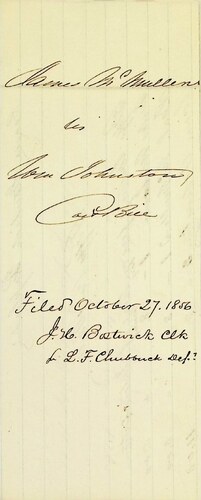 James McMullen
vs
Wm Johnston
Cost Bill
Filed October 27. 1856
J. H. Bostwick Clk
L. F. Chubbuck Dep.